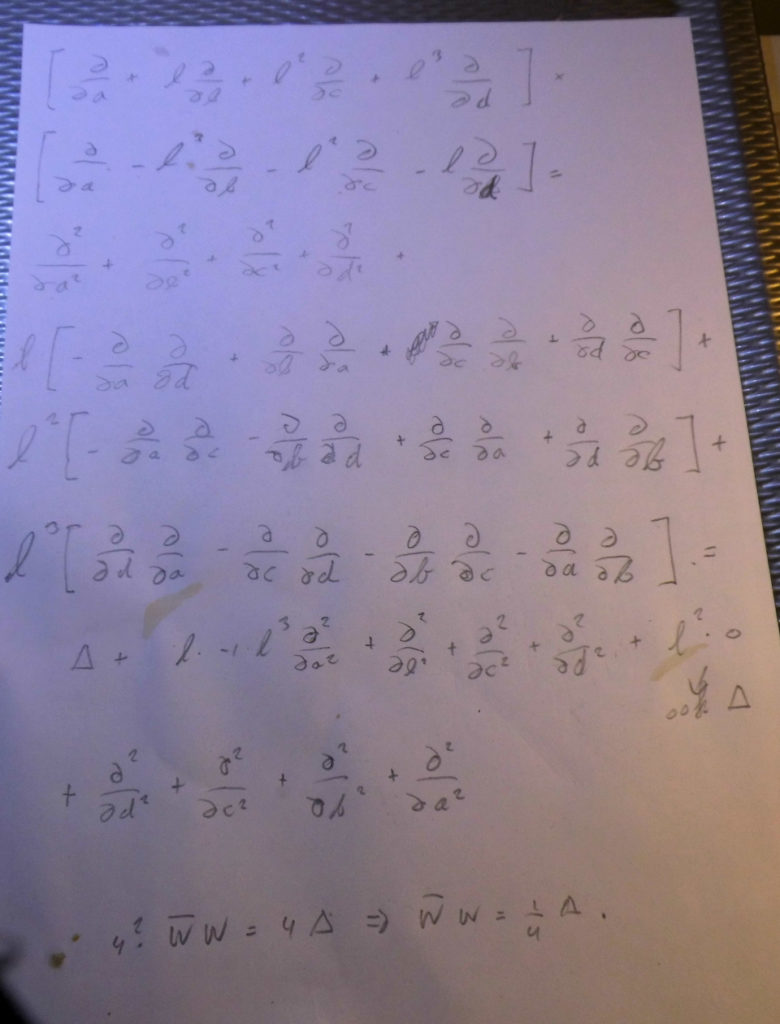 [ ∂/∂a + l ∂/∂b + l² ∂/∂c + l³ ∂/∂d ] ×
[ ∂/∂a - l³ ∂/∂b - l² ∂/∂c - l ∂/∂d ] =
∂²/∂a² + ∂²/∂b² + ∂²/∂c² + ∂²/∂d² +
l [ - ∂/∂a ∂/∂d + ∂/∂b ∂/∂a + ∂/∂c ∂/∂b + ∂/∂d ∂/∂c ] +
l² [ - ∂/∂a ∂/∂c - ∂/∂b ∂/∂d + ∂/∂c ∂/∂a + ∂/∂d ∂/∂b ] +
l³ [ ∂/∂d ∂/∂a - ∂/∂c ∂/∂d - ∂/∂b ∂/∂c - ∂/∂a ∂/∂b ] . =
Δ + l · -1 l³ ∂²/∂a² + ∂²/∂b² + ∂²/∂c² + ∂²/∂d² + l² · 0
ook Δ
+ ∂²/∂d² + ∂²/∂c² + ∂²/∂b² + ∂²/∂a²
4² · W̅ W = 4 Δ ⇒ W̅ W = 1/4 Δ .